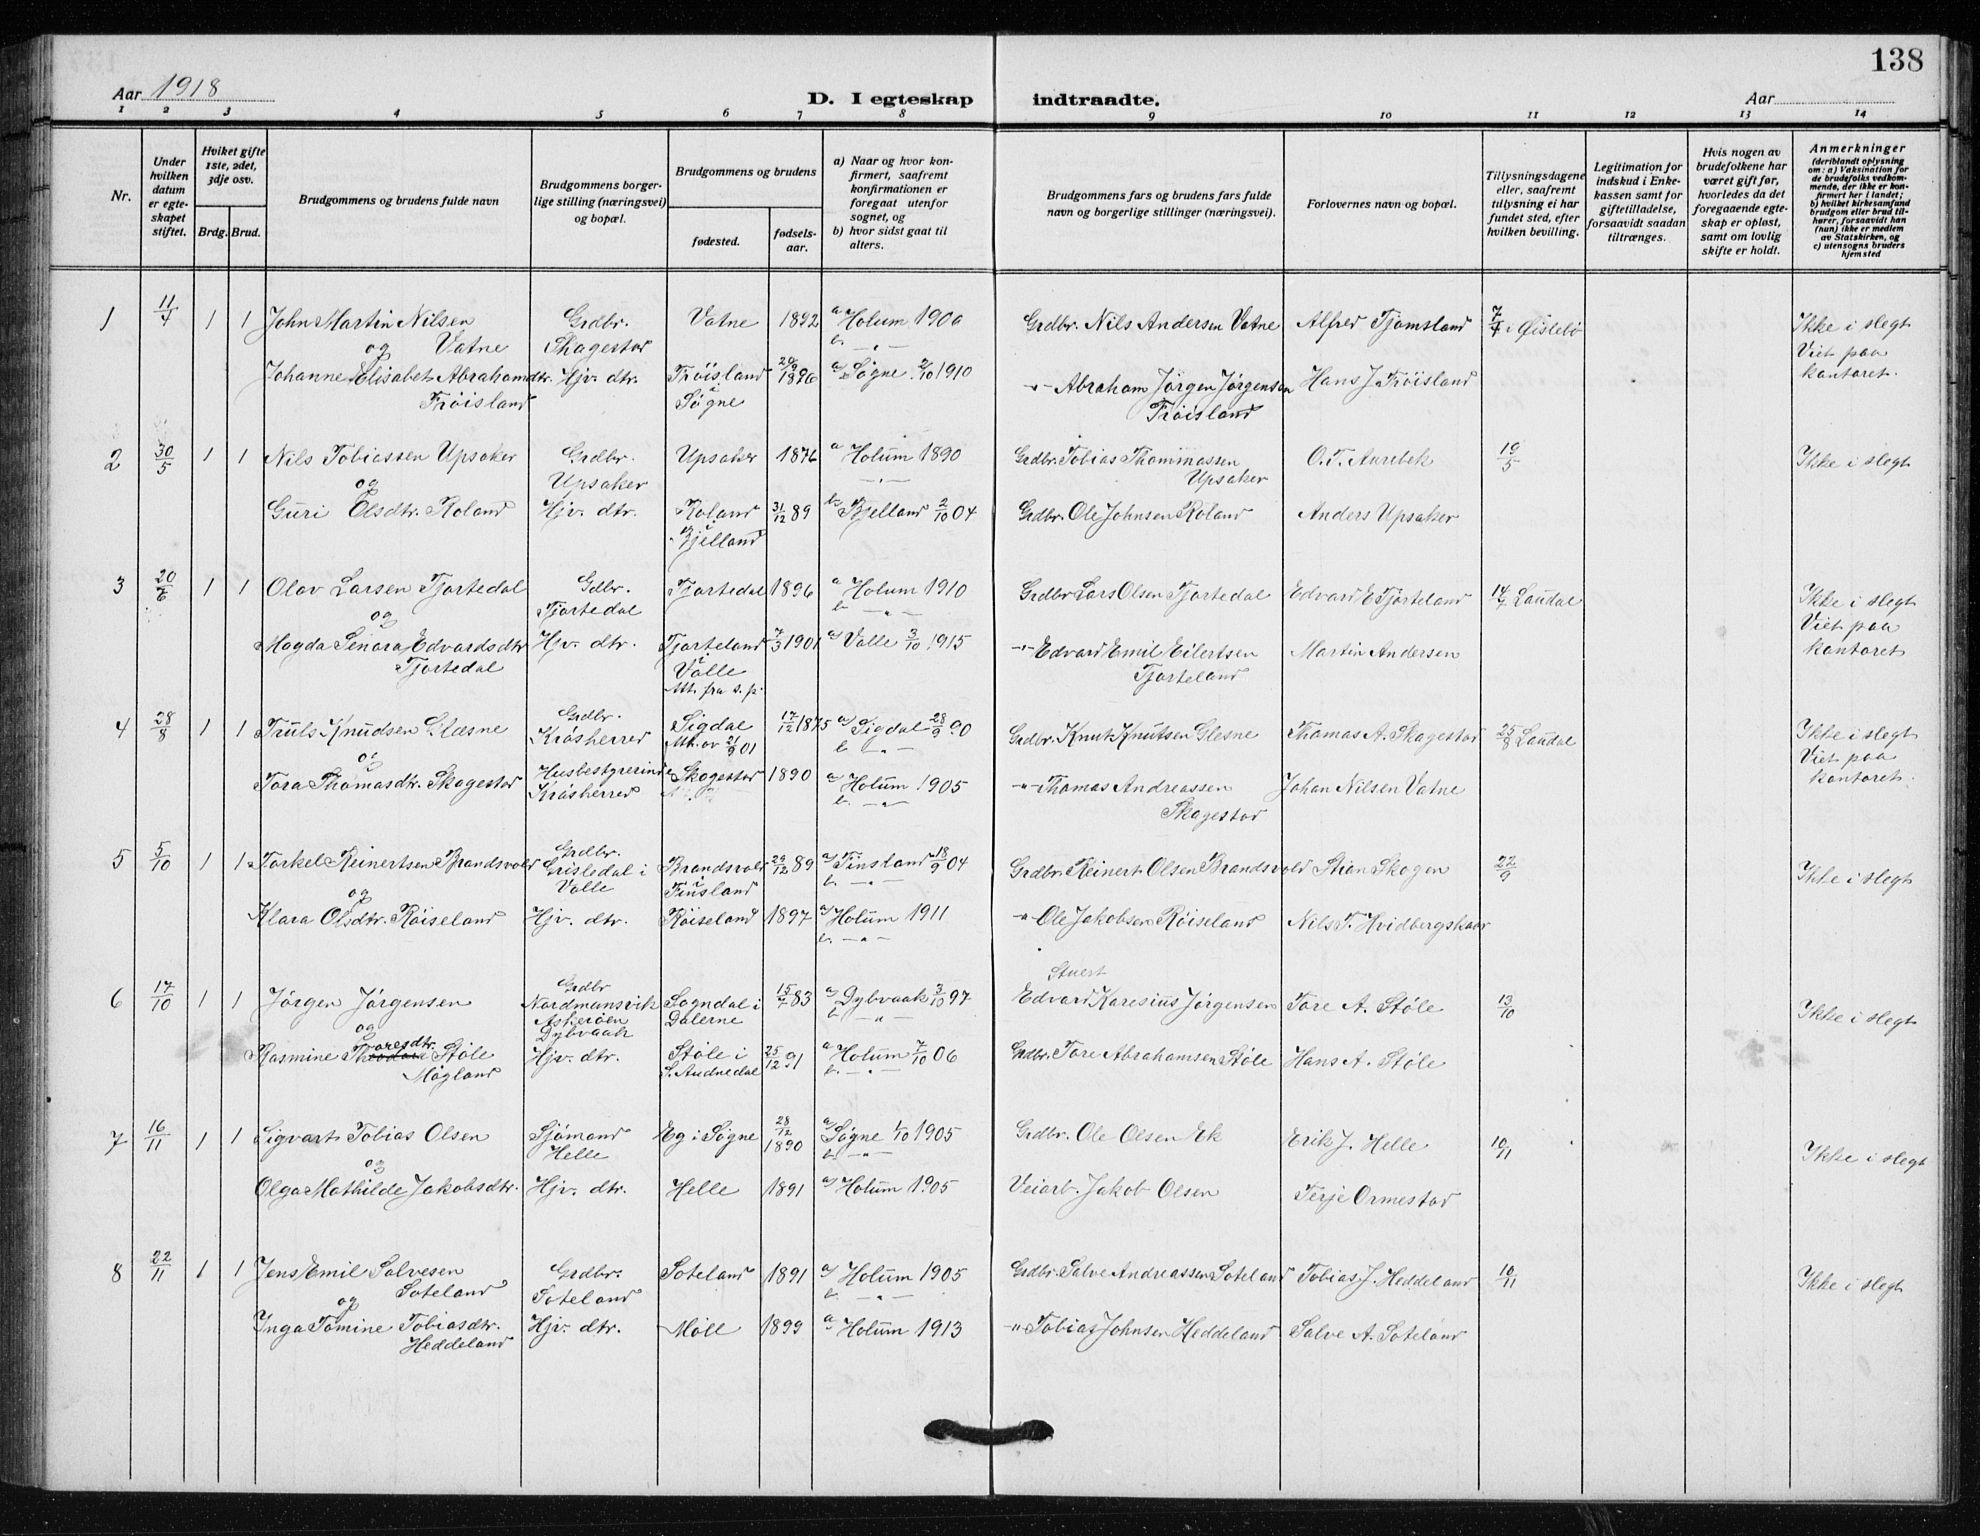 138
Aar 1918
D. I egteskap indtraadte.
Aar
1 2 3 4 5 6 7 8 9 10 11 12 13 14
Nr.
Under hvilken datum er egteskapet stiftet.
Hviket gifte 1ste, 2det, 3dje osv.
Brdg. Brud.
Brudgommens og brudens fulde navn
Brudgommens borgerlige stilling (næringsvei) og bopæl.
Brudgommens og brudens
fødested.
fødselsaar.
a) Naar og hvor konfirmert, saafremt konfirmationen er foregaat utenfor sognet, og
b) hvor sidst gaat til alters.
Brudgommens fars og brudens fars fulde navn og borgerlige stillinger (næringsvei).
Forlovernes navn og bopæl.
Tillysningsdagene eller, saafremt tillysning ei har fundet sted, efter hvilken bevilling.
Legitimation for indskud i Enkekassen samt for giftetilladelse, forsaavidt saadan tiltrænges.
Hvis nogen av brudefolkene har været gift før, hvorledes da det foregaaende egteskap er opløst, samt om lovlig skifte er holdt.
Anmerkninger
(deriblandt oplysning om: a) Vaksination for de brudefolks vedkommende, der ikke er konfirmert her i landet; b) hvilket kirkesamfund brudgom eller brud tilhører, forsaavidt han (hun) ikke er medlem av Statskirken, og c) utensogns bruders hjemsted
1 11/4 1 1 John Martin Nilsen Vatne Grdbr. Skagestad Vatne 1892 a Holum 1900 b. -"- Grdbr. Nils Andersen Vatne Alfred Tjomsland 7/4 i Øislebø Ikke i slegt Viet paa kontoret.
og
Johanne Elisabet Abrahamdtr. Frøisland Hjv. dtr. Frøisland i Søgne 20/9 1896 a) Søgne 2/10 1910 -"- Abraham Jørgen Jørgensen Frøisland Hans J. Frøisland
2 30/5 1 1 Nils Tobiassen Upsaker Grdbr. Upsaker Upsaker 1876 a Holum 1890 -"- Grdbr. Tobias Thommassen Upsaker O. T. Aurebek 19/5 Ikke i slegt
og
Guri Olsdtr. Roland Hjv. dtr. Roland i Bjelland 31/12 89 b. Bjelland 2/10 04 Grdbr. Ole Johnsen Roland Anders Upsaker
3 20/6 1 1 Olav Larsen Tjortedal Gdbr. Tjortedal Tjortedal 1896 a Holum 1910 b. -"- Grdbr Lars Olsen Tjortedal Edvard E Tjorteland 14/4 Laudal Ikke i slegt Viet paa kontoret
og
Magda Senora Edvardsdtr Tjortedal Hjv. dtr. Tjorteland i Valle Att. fra s.p. 7/3 1901 a) Valle 3/10 1915 -"- Edvard Emil Eilertsen Tjorteland Martin Andersen
4 28/8 1 1 Truls Knudsen Glæsne Grdbr. Kråsherred Sigdal Att. av 21/9 01 17/12 1875 a) Sigdal 28/9 90 b. -"- Grdbr. Knut Knutsen Glesne Thomas A. Skagestad 25/8 Laudal Ikke i slegt Viet paa kontoret.
og
Tora Thomasdtr. Skagestad Husbestyrerinde Kråsherred Skagestad 1890 a) Holum 1905 b. -"- -"- Thomas Andreassen Skagestad Johan Nilsen Vatne
5 5/10 1 1 Torkel Reinertsen Brandsvold Grdbr. Grisledal i Valle Brandsvold i Finsland 29/12 89 a) Finsland 18/9 04 b. -"- Grdbr. Reinert Olsen Brandsvold Stian Skogen 22/9 Ikke i slegt
og
Klara Olsdtr. Røiseland Hjv. dtr. Røiseland 1897 a) Holum 1911 b. -"- -"- Ole Jakobsen Røiseland Nils T. Hvidbergskaar
6 17/10 1 1 Jørgen Jørgensen Grdbr Nordmansvik Askerøen Dybvaak Sogndal i Dalerne 15/7 83 a) Dybvaak 3/10 97 b. -"- Stuert Edvard Karesius Jørgensen Tore A. Støle 13/10 Ikke i slegt
og
Rasmine Toresdtr. Støle Møgland Hjv. dtr. Støle i S. Audnedal 25/12 91 a Holum 7/10 06 b. -"- Grdbr. Tore Abrahamsen Støle Hans A. Støle
7 16/11 1 1 Sigvart Tobias Olsen Sjømand Helle Eg i Søgne 28/12 1890 a) Søgne 1/10 1905 b. -"- Grdbr. Ole Olsen Ek Erik J. Helle 10/11 Ikke i slegt
og
Olga Mathilde Jakobsdtr. Hjv. dtr. Helle 1891 a) Holum 1905 Veiarb. Jakob Olsen Terje Ormestad
8 22/11 1 1 Jens Emil Salvesen Soteland Grdbr. Soteland Soteland 1891 a) Holum 1905 b. -"- Grdbr. Salve Andreassen Soteland Tobias J. Heddeland 10/11 Ikke i slegt
og
Inga Tomine Tobiasdtr. Heddeland Hjv. dtr. Møll 1899 a Holum 1913 -"- Tobias Johnsen Heddeland Salve A. Soteland